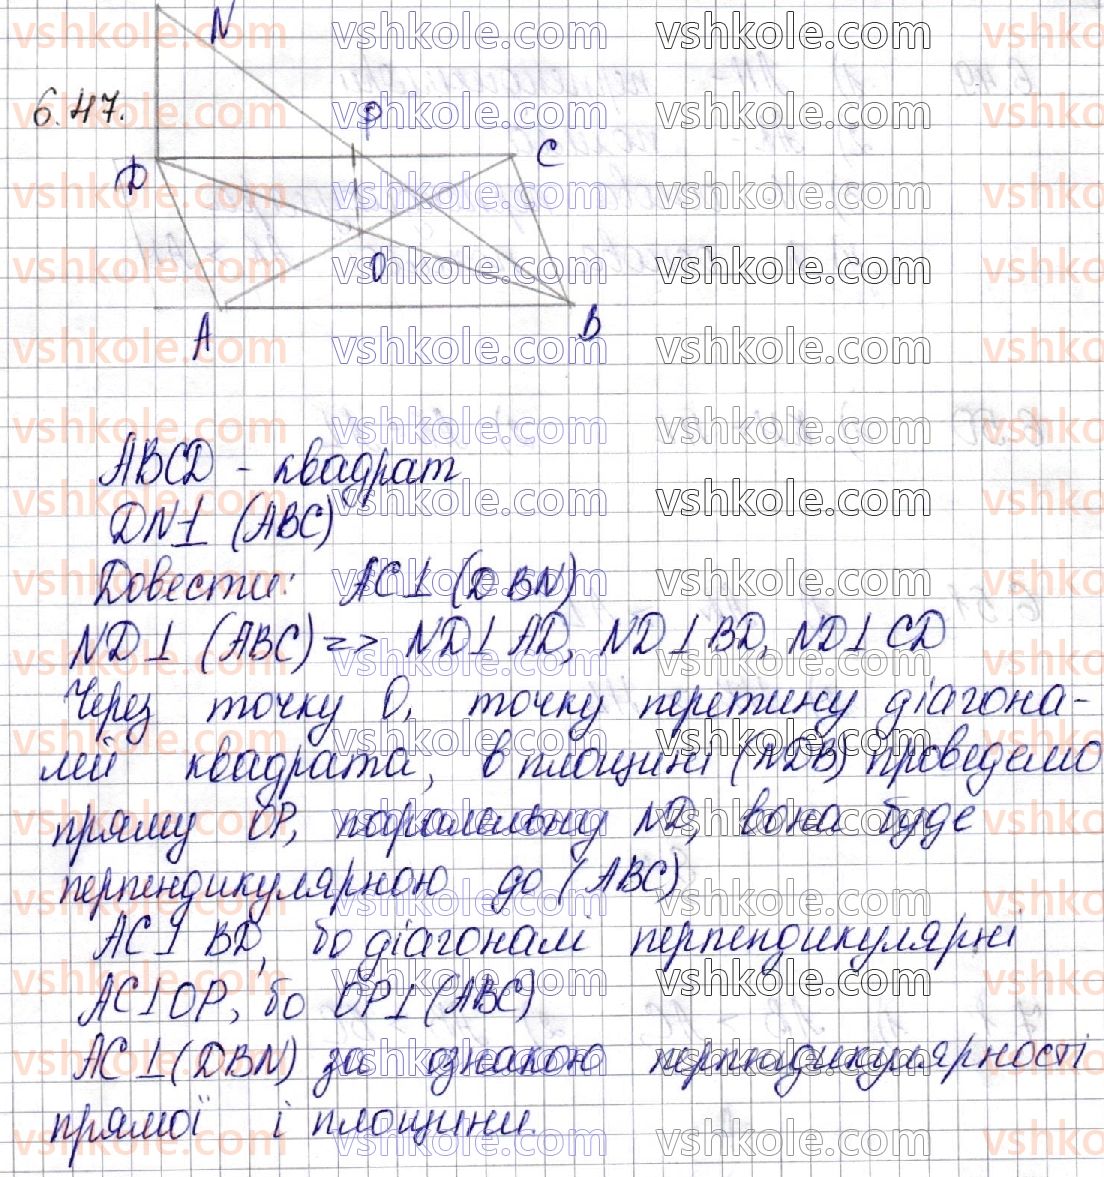 N
vshkole.com vshkole.com vshkole.com
6.47.
P
D
C
O
A
B
ABCD - квадрат
DN⊥ (ABC)
Довести: AC⊥(DBN)
ND⊥ (ABC) => ND⊥AD, ND⊥BD, ND⊥CD
Через точку O, точку перетину діагона-
лей квадрата, в площині (NDB) проведемо
пряму OP, паралельну ND, вона буде
перпендикулярною до (ABC)
AC⊥BD, бо діагоналі перпендикулярні
AC⊥OP, бо OP⊥(ABC)
AC⊥(DBN) за ознакою перпендикулярності
прямої і площини.